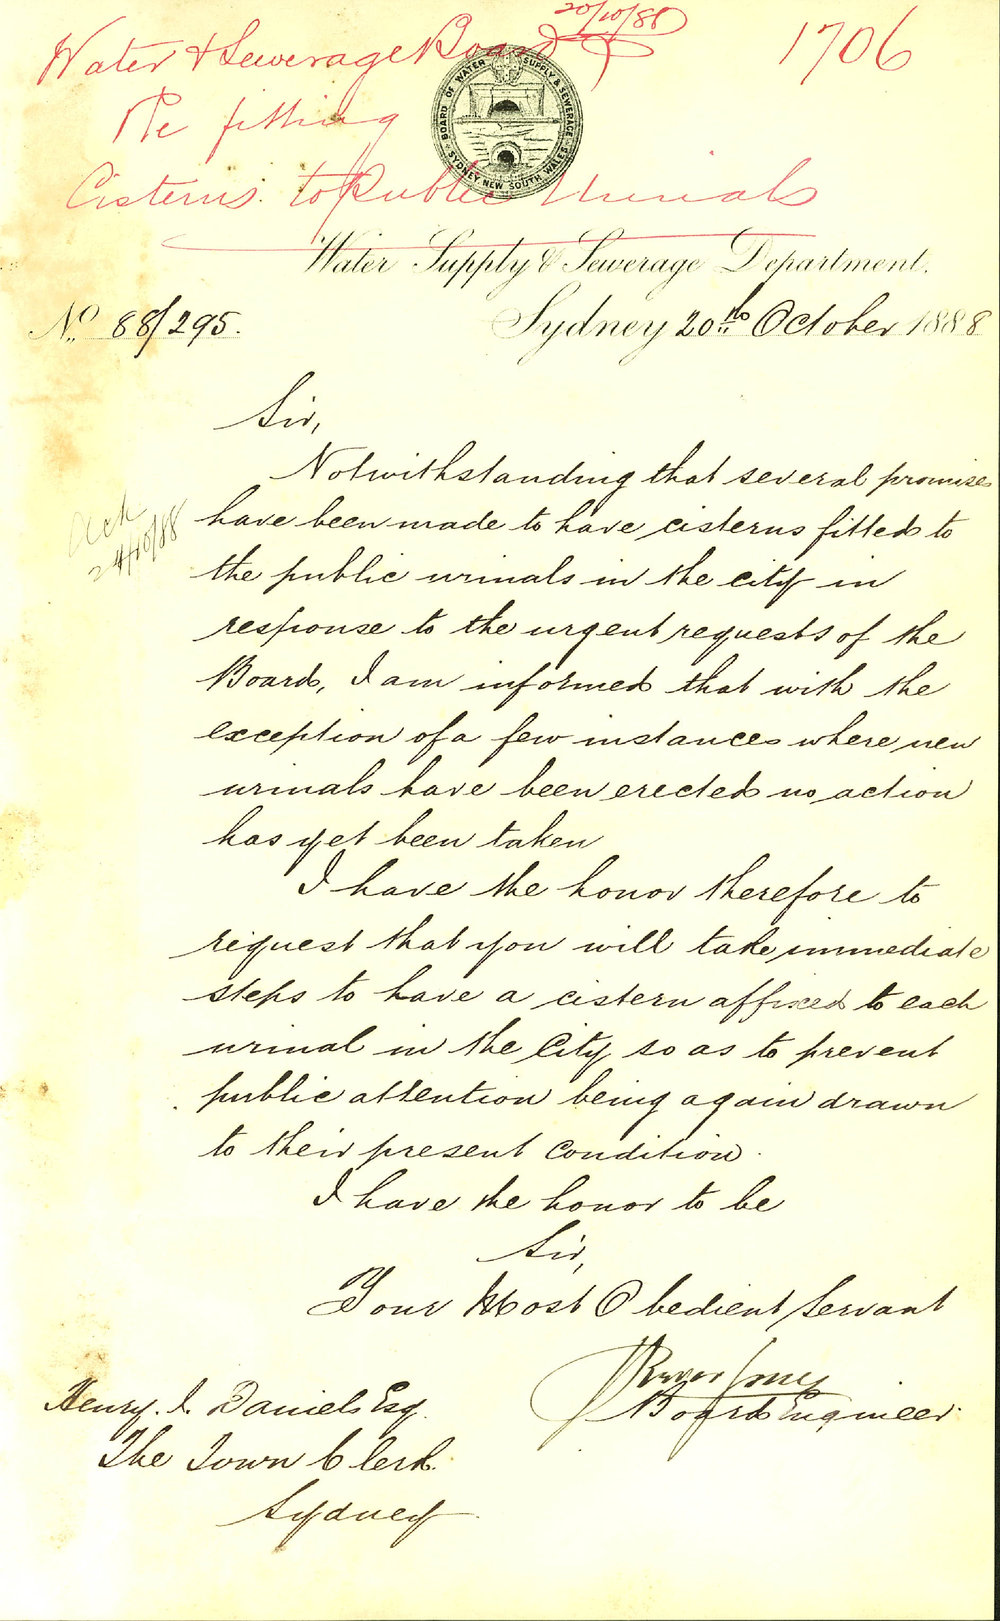 20/10/88
Water & Sewerage Board
1706
Re fitting
Cisterns to Public Urinals
BOARD OF WATER SUPPLY & SEWERAGE
SYDNEY NEW SOUTH WALES
Water Supply & Sewerage Department.
No. 88/295.
Sydney 20th October 1888
Sir,
Notwithstanding that several promises
have been made to have cisterns fitted to
the public urinals in the city in
response to the urgent requests of the
Board, I am informed that with the
exception of a few instances where new
urinals have been erected no action
has yet been taken
Ack
24/10/88
I have the honor therefore to
request that you will take immediate
steps to have a cistern affixed to each
urinal in the City so as to prevent
public attention being again drawn
to their present condition.
I have the honor to be
Sir,
Your Most Obedient Servant
J Trevor Jones
Board Engineer.
Henry. J. Daniels Esq.
The Town Clerk.
Sydney